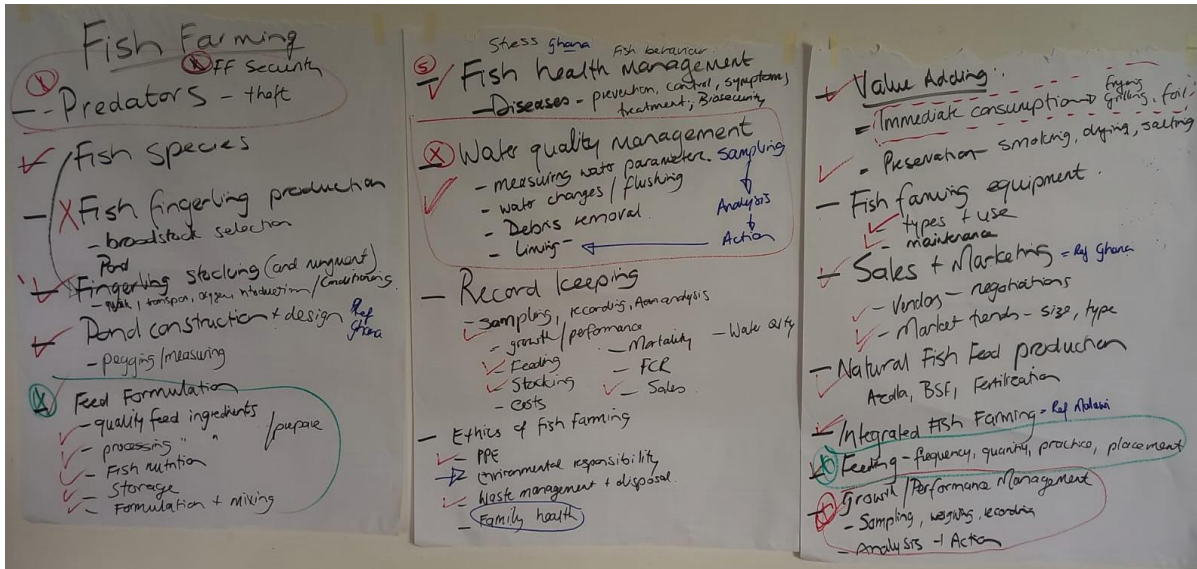 Fish Farming
FF Security
- Predators - theft
- Fish species
- Fish fingerling production
- broodstock selection
Pond
- Fingerling stocking (and
transport, oxygen, introduction / Conditioning
- Pond construction + design Ref Ghana
- pegging/measuring
Feed Formulation
- quality feed ingredients
- processing " " / prepare
- Fish nutrition
- Storage
- Formulation + mixing
Stress Ghana Fish behaviour
5
- Fish health management
- Diseases - prevention, control, symptoms,
treatment, Biosecurity
- Water quality management
- measuring water parameters. Sampling
- water changes / flushing
- Debris removal Analysis
- Liming - Action
- Record keeping
- Sampling, recording, analysis
- growth / performance
- Mortality - Water
- Feeding - FCR
- Stocking - Sales
- costs
- Ethics of fish farming
- PPE
- Environmental responsibility
- Waste management + disposal.
- Family health
- Value Adding
= Immediate consumption Frying Grilling, foil
- Preservation - smoking, drying, salting
- Fish farming equipment.
- types + use
- maintenance
- Sales + Marketing = Ref Ghana
- Vendors - negotiations
- Market trends - size, type
- Natural Fish Feed production
Azolla, BSF,
- Integrated Fish Farming = Ref Malawi
- Feeding - frequency, quantity, practice, placement
- Growth / Performance Management
- Sampling, weighing, recording
- Analysis → Action